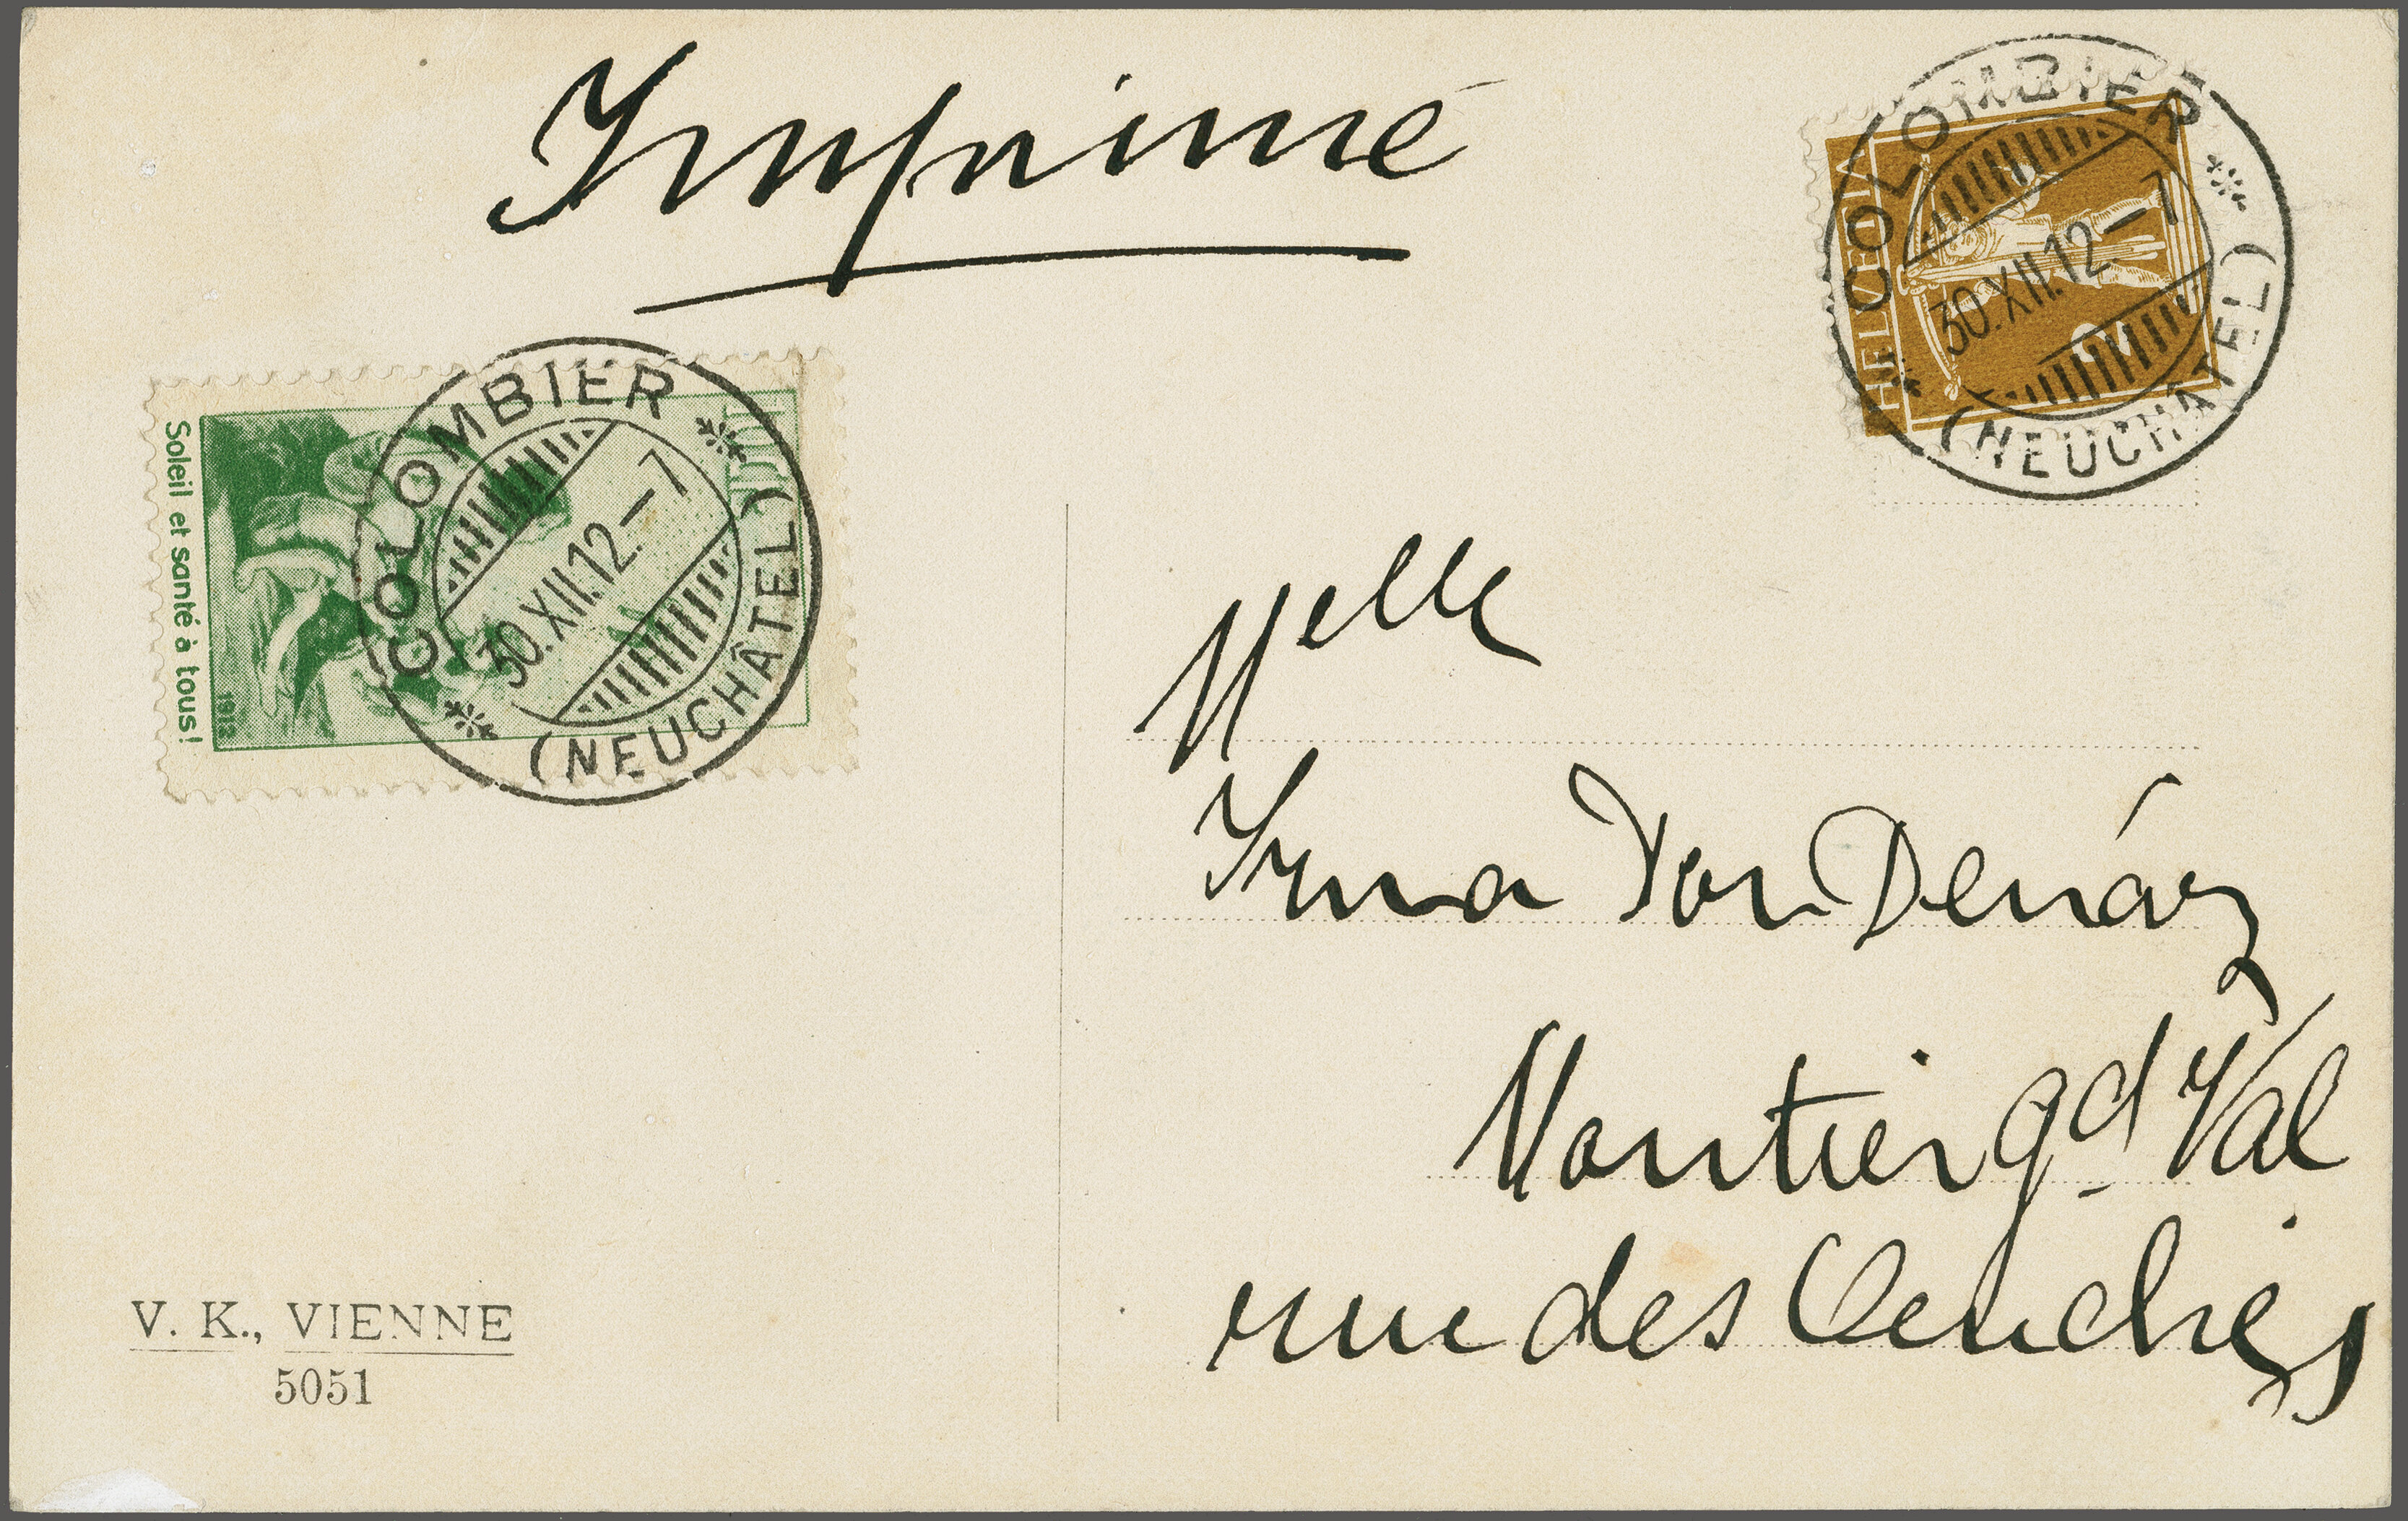 Imprimé
COLOMBIER
30.XII.12.-7
(NEUCHÂTEL)
HELVETIA
2
COLOMBIER
30.XII.12.-7
(NEUCHÂTEL)
Soleil et santé à tous!
1912
Melle
Irma Von
Moutier gd Val
rue des
V. K., VIENNE
5051